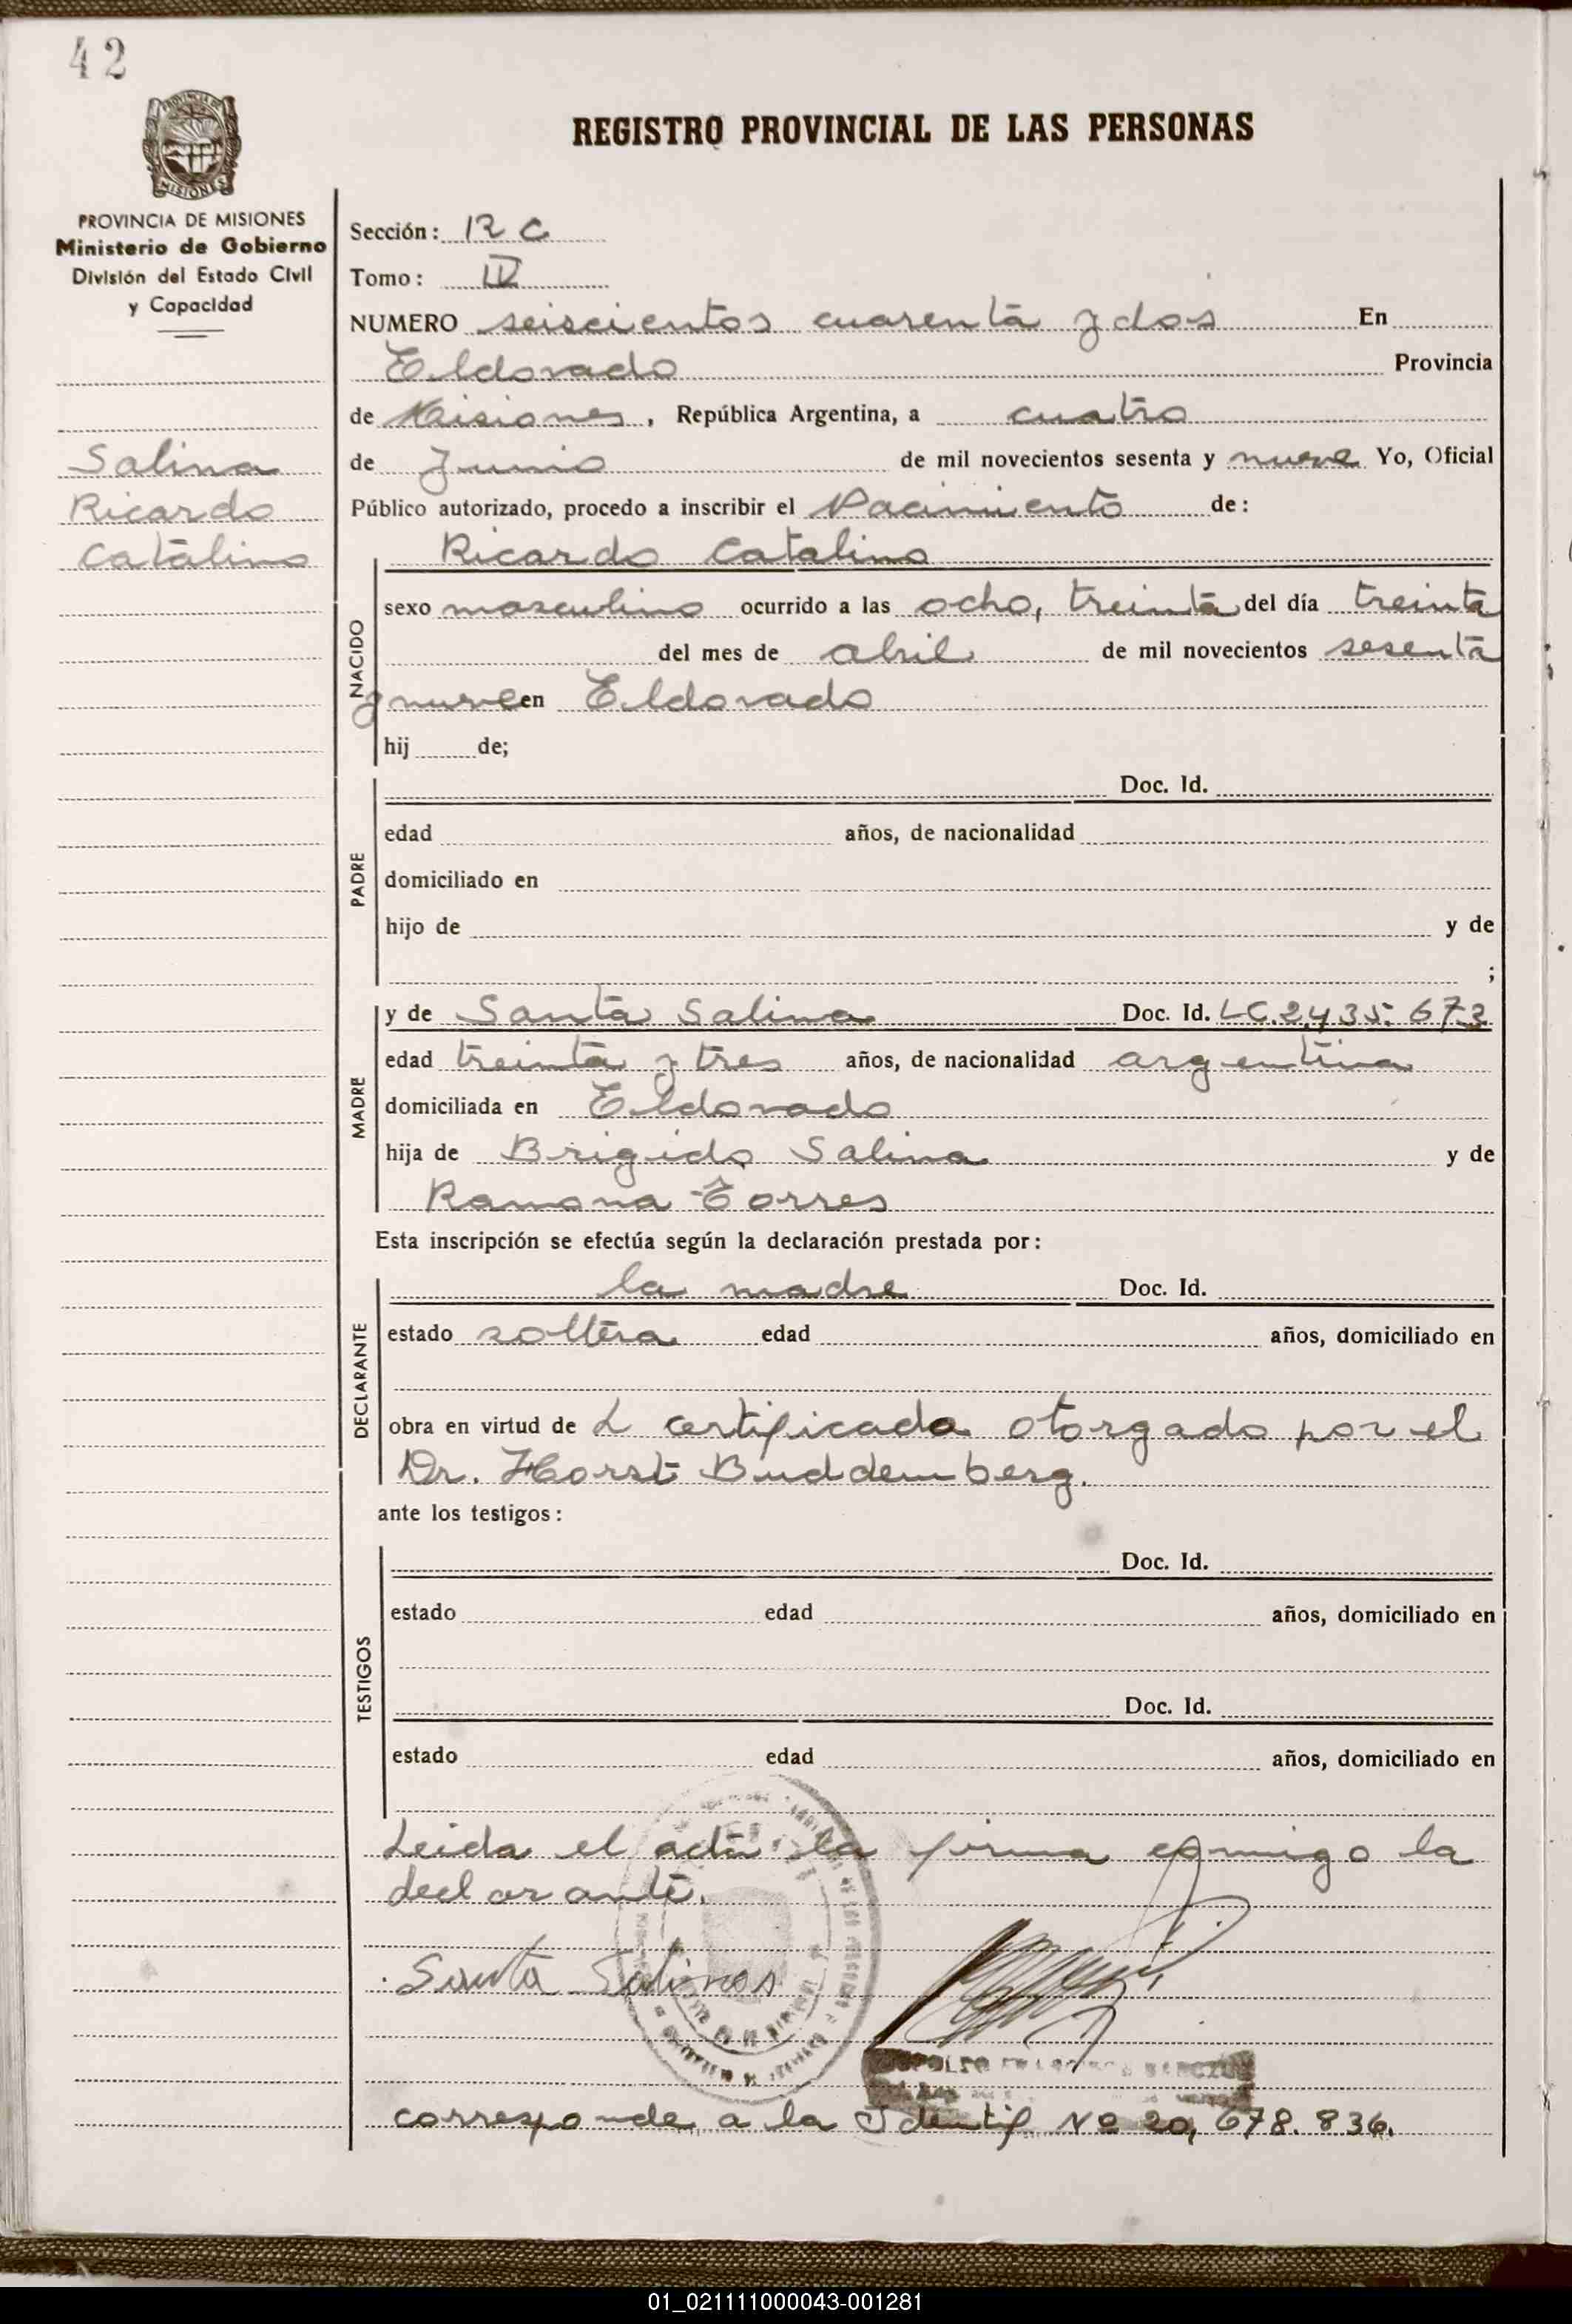 42
PROVINCIA DE
MISIONES
REGISTRO PROVINCIAL DE LAS PERSONAS
PROVINCIA DE MISIONES
Ministerio de Gobierno
División del Estado Civil
y Capacidad
Salina
Ricardo
Catalino
Sección: R C
Tomo: IV
NUMERO seiscientos cuarenta y dos En
Eldorado Provincia
de Misiones, República Argentina, a cuatro
de Junio de mil novecientos sesenta y nueve Yo, Oficial
Público autorizado, procedo a inscribir el Nacimiento de:
Ricardo Catalino
NACIDO
sexo masculino ocurrido a las ocho, treinta del día treinta
del mes de abril de mil novecientos sesenta
y nueve en Eldorado
hij de;
PADRE
Doc. Id.
edad años, de nacionalidad
domiciliado en
hijo de y de
;
MADRE
y de Santa Salina Doc. Id. LC.2.435.673
edad treinta y tres años, de nacionalidad argentina
domiciliada en Eldorado
hija de Brigido Salina y de
Ramona Torres
Esta inscripción se efectúa según la declaración prestada por:
DECLARANTE
la madre Doc. Id.
estado soltera edad años, domiciliado en
obra en virtud de L certificado otorgado por el
Dr. Horst Buddemberg.
ante los testigos:
TESTIGOS
Doc. Id.
estado edad años, domiciliado en
Doc. Id.
estado edad años, domiciliado en
Leida el acta la firma conmigo la
declarante.
Santa Salinas
corresponde a la Identif Nº 20,678.836.
01_021111000043-001281